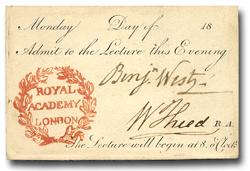 Monday Day of 18
Admit to the Lecture this Evening
Benjn. West
ROYAL
ACADEMY
LONDON
Wm Theed R.A.
The Lecture will begin at 8, o'Clock